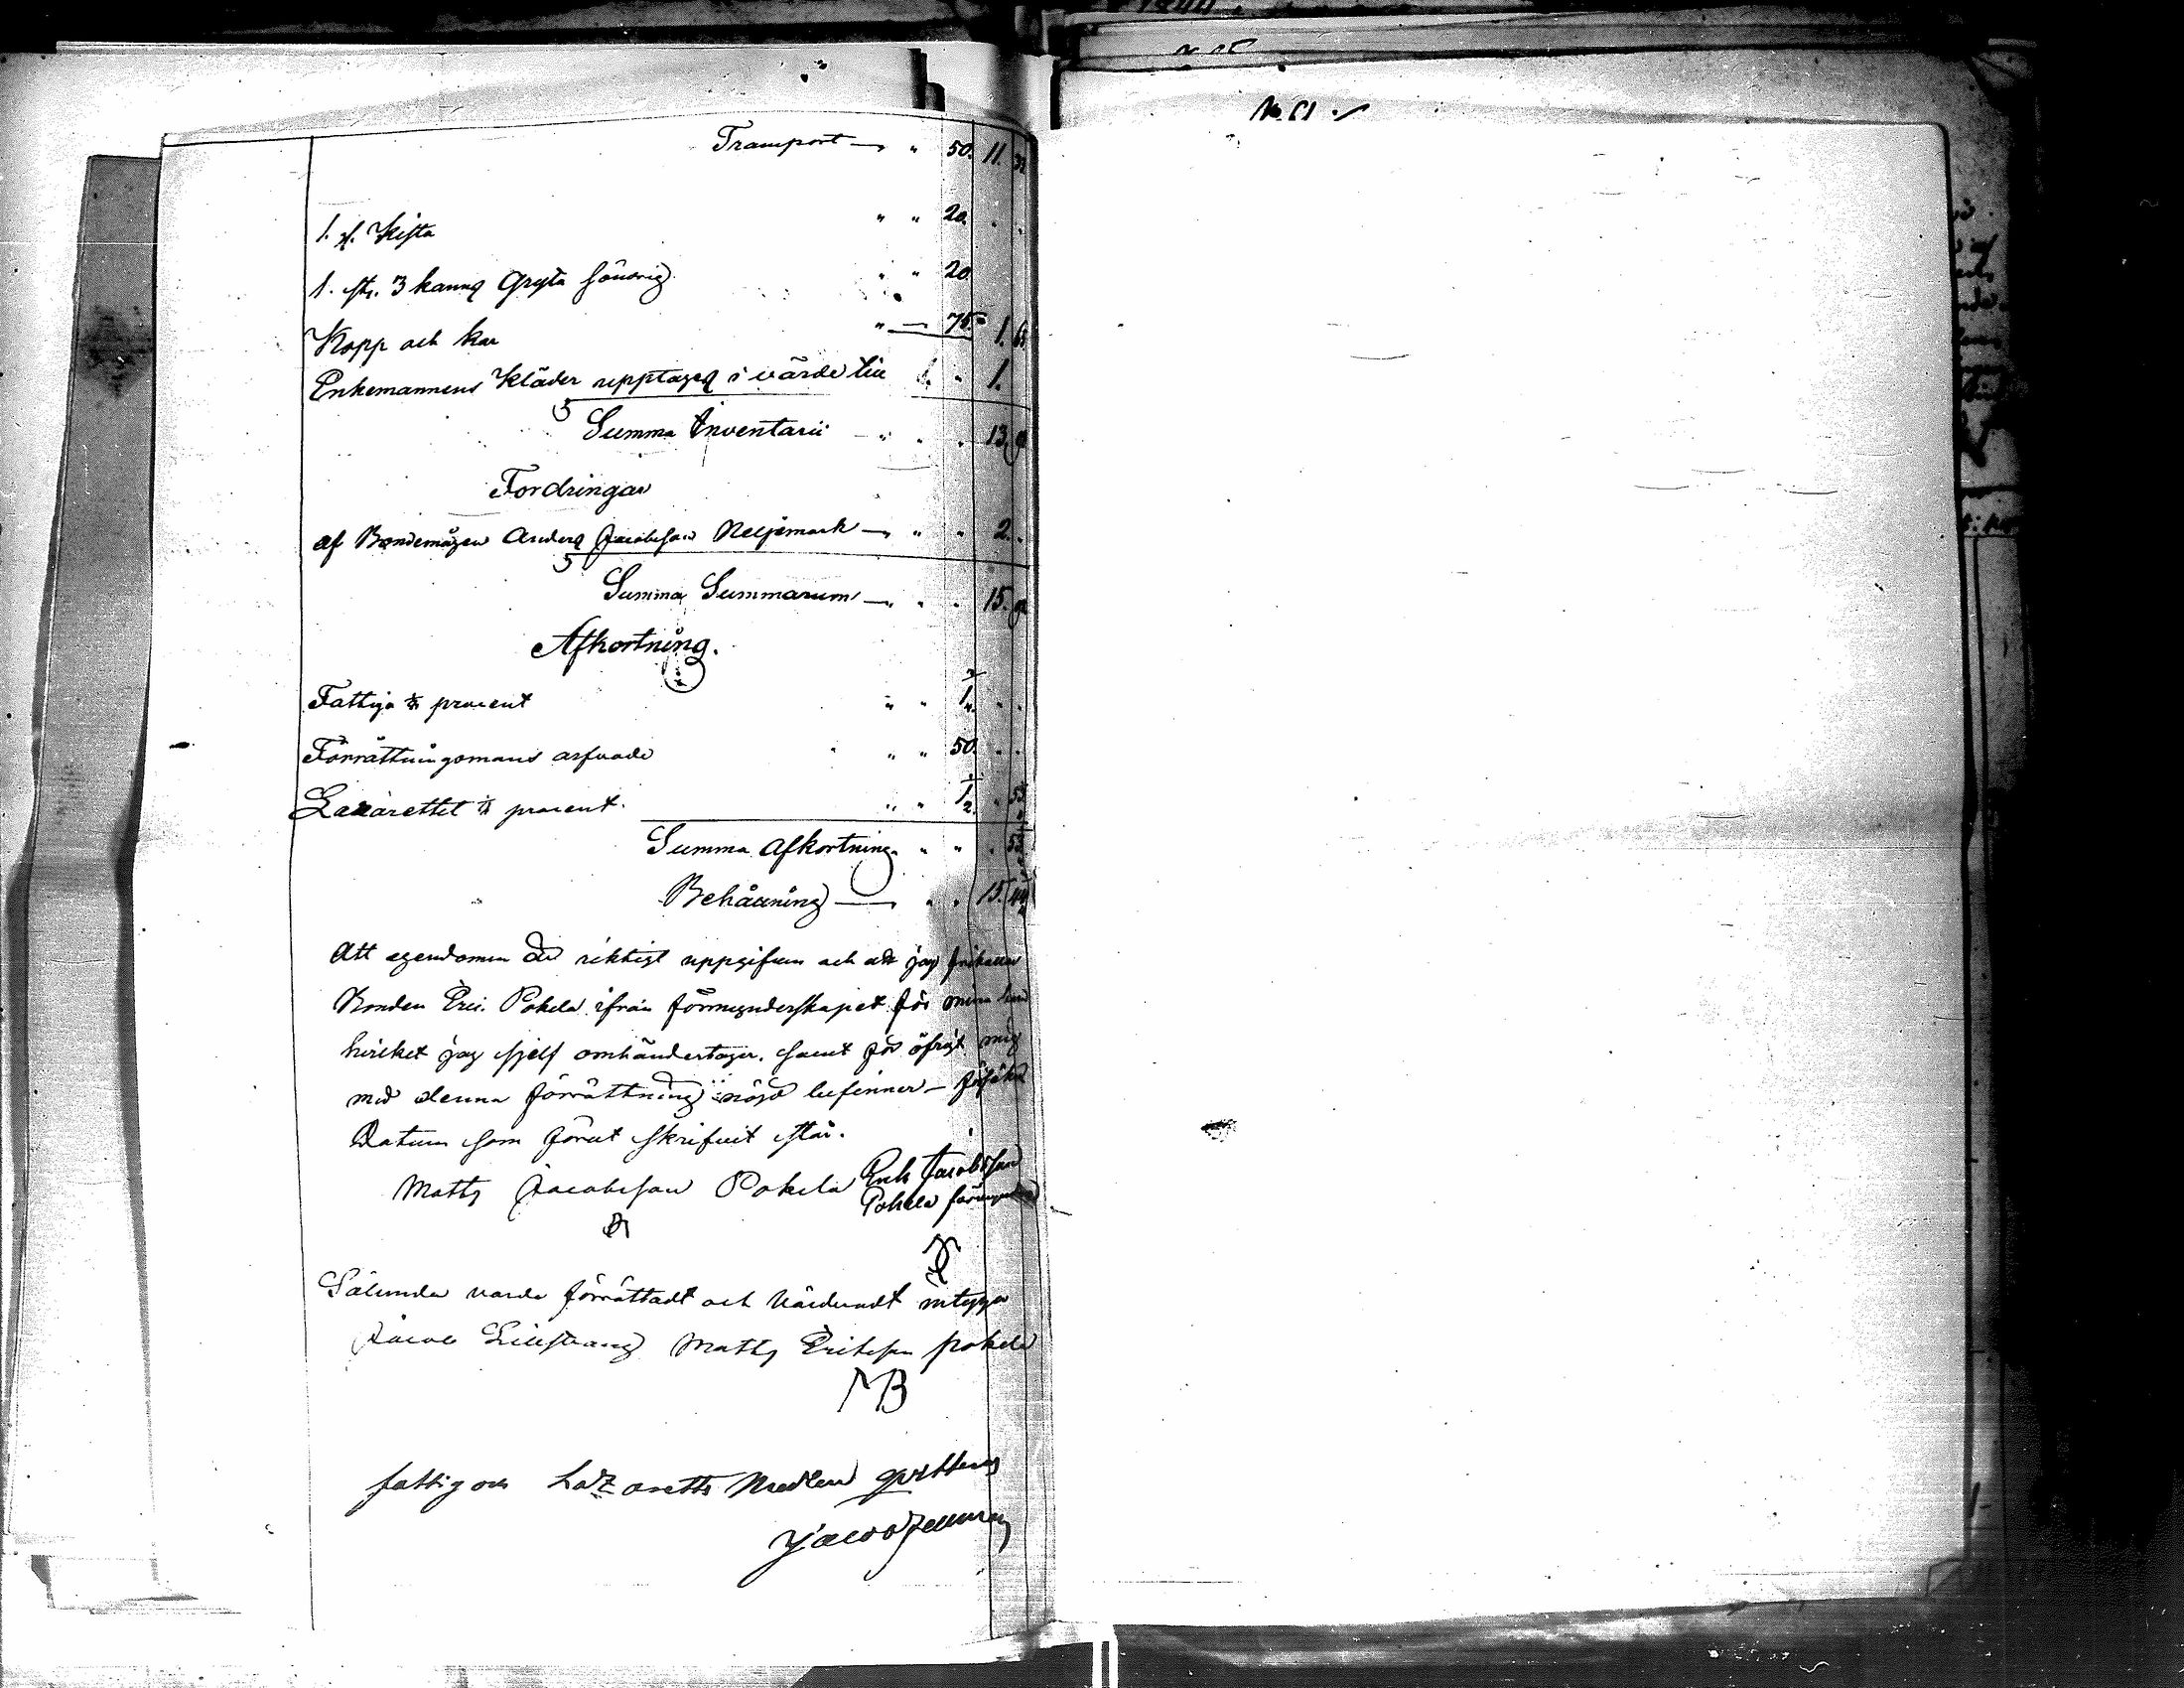 Transport — " 50. 11.
1. st. Kista " " 20.
1. st. 3 kannq Gryta söndrig " " 20
Kopp och kar " — 75. 1.
Enkemannens Kläder upptagna i värde till 1. " 1.
Summa Inventarii " " 13.
Fordringar
af Bondemågen Anders Jacobsson Neljemark — " " 2. "
Summa Summarum — " " 15.
Afkortning.
Fattiga procent " " 1/4
Förrättningsmans arfvode " " 50.
Lazarettet procent. " " 1/2
Summa Afkortning " "
Behållning — " " 15.
Att egendomen är riktigt uppgifven och att jag frikallar
Bonden Eric Pokela ifrån förmynderskapet för mina barn
hvilket jag sjelf omhändertager. samt för öfrigt mig
med denna förrättning nöjd befinner — försäkrar
Datum som förut skrifvit står.
Matts Jacobsson Pokela Erik Jacobsson
Pokela förmyndare
Sålunda vara förrättadt och värderadt intyga
Jacob Liljestrang Matts Eriksson pokela
MB
fattig och Lazaretts Medlen qvitteras
Jacob
No 61.